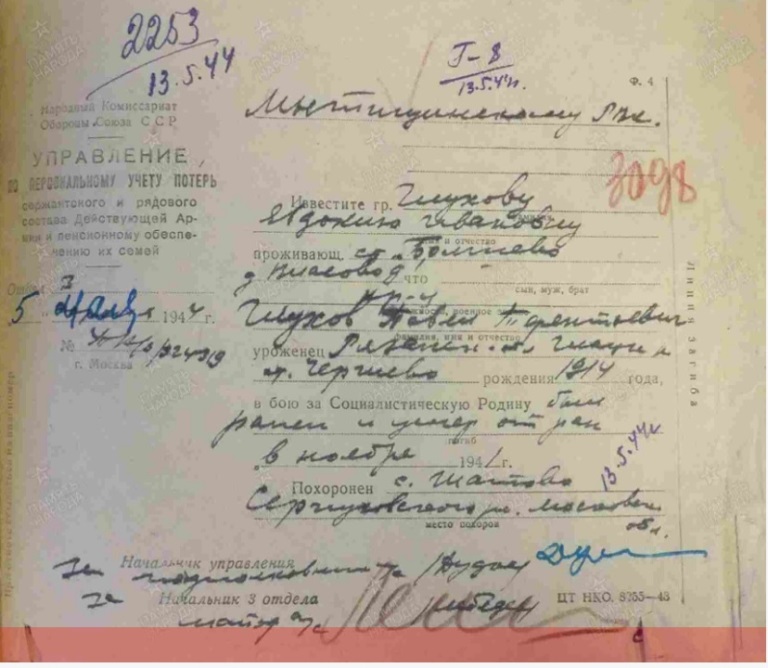 2253
13.5.44
Г-8
13.5.44г.
Ф. 4
Народный Комиссариат
Обороны Союза ССР
Мытищинскому РВК.
УПРАВЛЕНИЕ
ПО ПЕРСОНАЛЬНОМУ УЧЕТУ ПОТЕРЬ
сержантского и рядового
состава Действующей Ар-
мии и пенсионному обеспе-
чению их семей
3098
Известите гр. Глухову
Евдокию Ивановну
имя и отчество
проживающ. ст. Болшево
что
сын, муж, брат
Отдел 3
5 мая 1944 г.
№
г. Москва
кр-ц
Глухов Павел Терентьевич
фамилия, имя и отчество
уроженец Рязанск. обл.
рождения 1914 года,
в бою за Социалистическую Родину был
ранен и умер от ран
погиб
в ноябре 1941 г.
13.5.44г
Похоронен с. Шатово
Серпуховского р. Московск.
обл.
место похорон
Линия загиба
Начальник управления
подполковник
Начальник 3 отдела
майор
ЦТ НКО. 8255—43